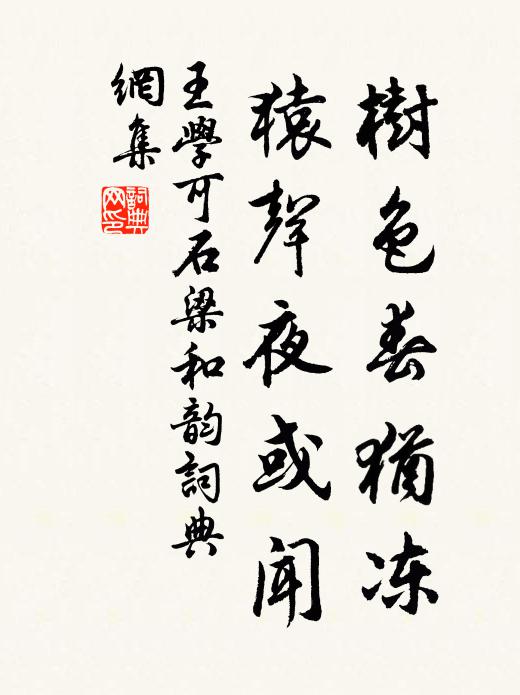 樹色春猶冻
猿聲夜或聞
王學可石梁和韵詞典
網集
詞典
网印